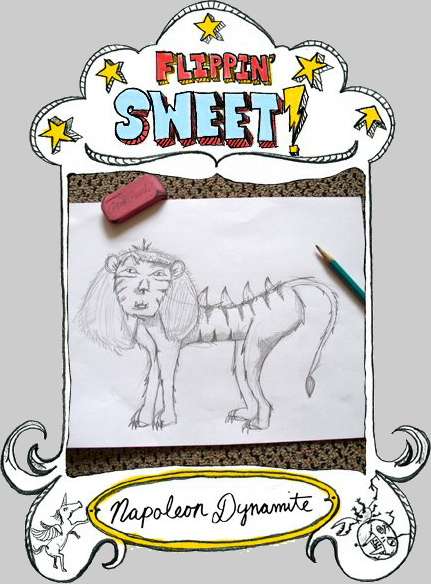 FLIPPIN'
SWEET!
Napoleon Dynamite